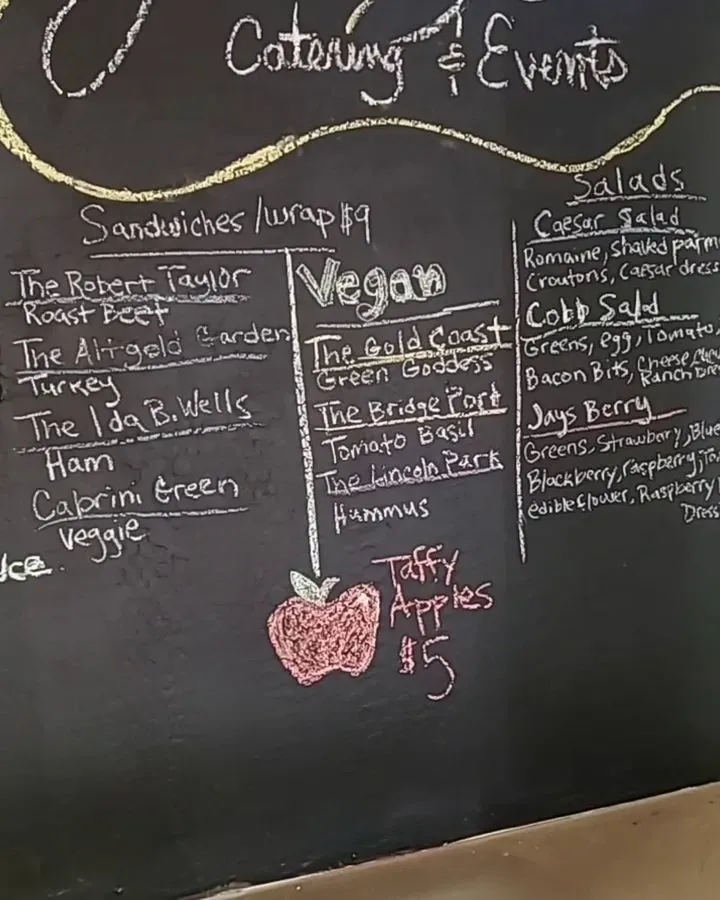 Catering & Events
Sandwiches/wrap $9
The Robert Taylor
Roast Beef
The Altgeld Garden
Turkey
The Ida B. Wells
Ham
Cabrini Green
Veggie
uce.
Vegan
The Gold Coast
Green Goddess
The Bridge Port
Tomato Basil
The Lincoln Park
Hummus
Taffy
Apples
$5
Salads
Caesar Salad
Romaine, shaved parm
Croutons, Caesar dress
Cobb Salad
Greens, egg, Tomato,
Bacon Bits, Cheese,
Ranch Dre
Jays Berry
Greens, Strawbery, Blue
Blackberry, raspberry, To
edible flower, Raspberry
Dress